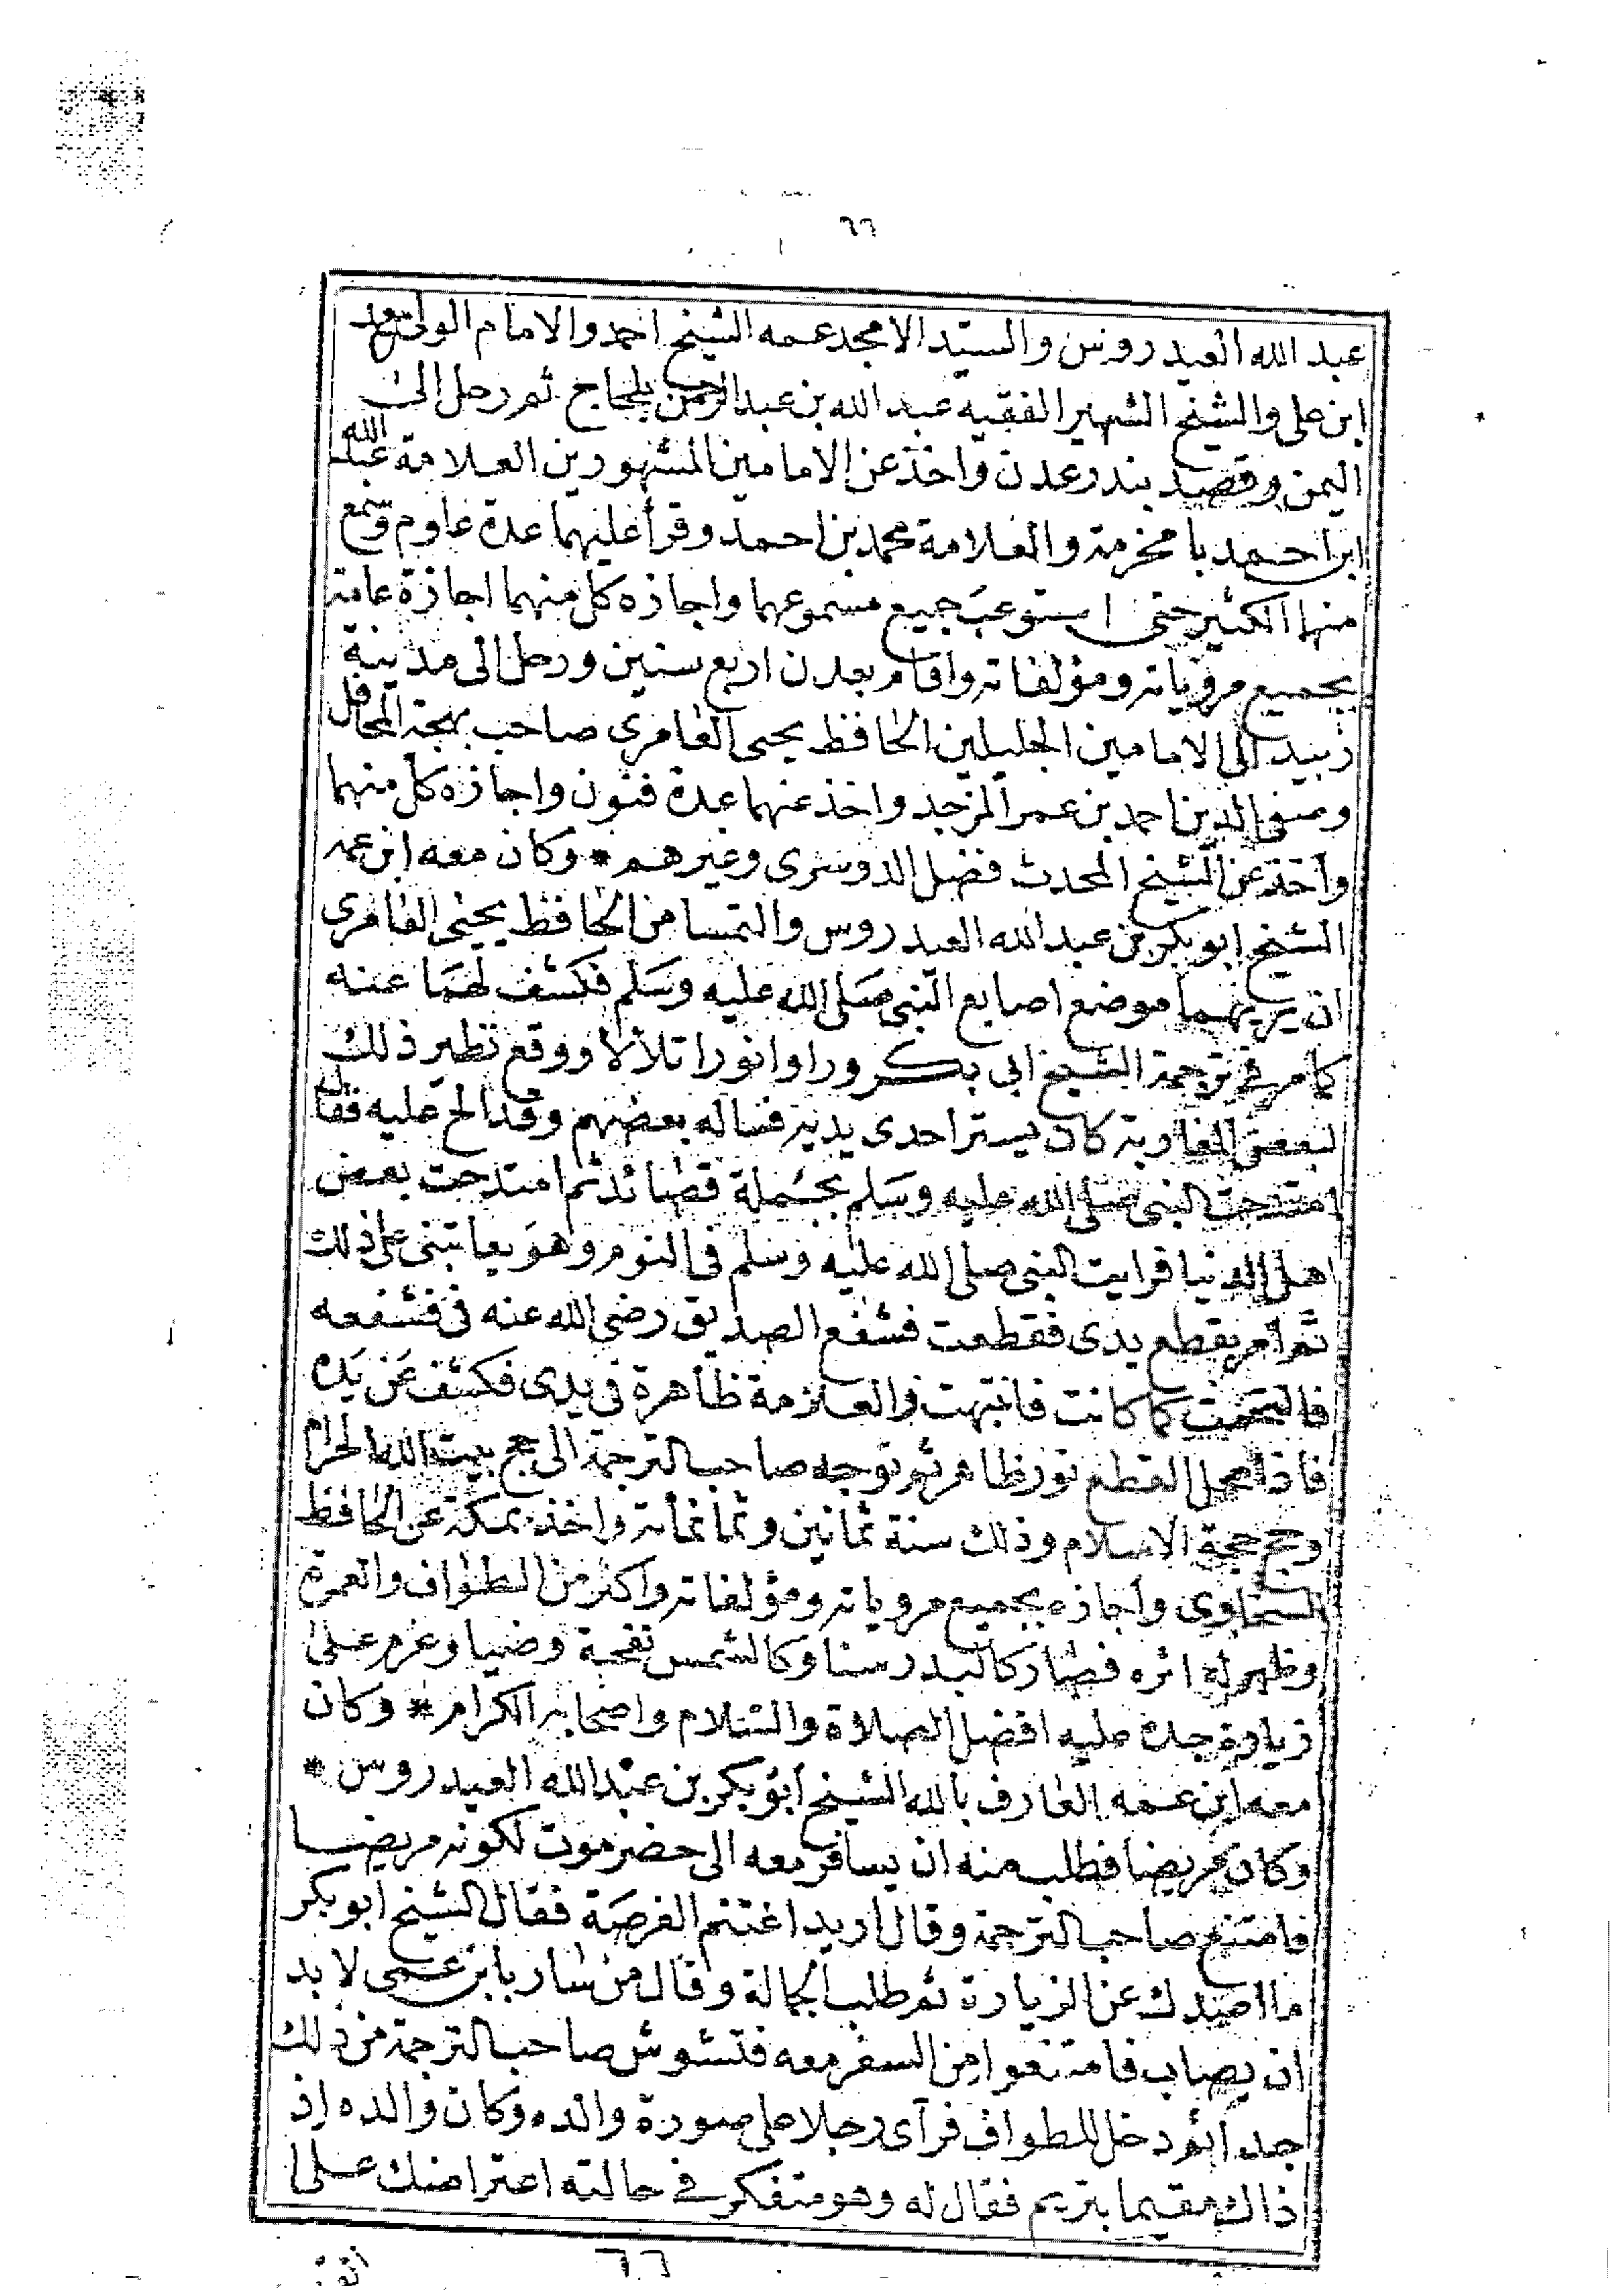 ٦٦
عبد الله العيدروس والسيد الامجد عمه الشيخ احمد والامام الولى سعد
ابن على والشيخ الشهير الفقيه عبد الله بن عبد الرحمن بلحاج ثم رحل الى
اليمن وقصد بندر عدن واخذ عن الامامين المشهورين العلامة عبد الله
ابن احمد با مخرمة والعلامة محمد بن احمد وقرأ عليهما عدة علوم وسمع
منهما الكثير حتى استوعب جميع مسموعهما واجازه كل منهما اجازة عامة
بجميع مروياته ومؤلفاته واقام بعدن اربع سنين ورحل الى مدينة
زبيد الى الامامين الجليلين الحافظ يحيى العامرى صاحب بهجة المحافل
وصفى الدين احمد بن عمر المزجد واخذ عنهما عدة فنون واجازه كل منهما
واخذ عن الشيخ المحدث فضل الدوسرى وغيرهم * وكان معه ابن عمه
الشيخ ابو بكر بن عبد الله العيدروس والتمسا من الحافظ يحيى العامرى
ان يريهما موضع اصابع النبى صلى الله عليه وسلم فكشف لهما عنه
كما مر فى ترجمة الشيخ ابى بكر وراوا نورا تلألأ ووقع نظير ذلك
لبعض المغاربة كان يستر احدى يديه فساله بعضهم وقد الح عليه فقال
امتدحت النبى صلى الله عليه وسلم بجملة قصائد ثم امتدحت بعض
اهل الدنيا فرايت النبى صلى الله عليه وسلم فى النوم وهو يعاتبنى على ذلك
ثم امر بقطع يدى فقطعت فشفع الصديق رضى الله عنه فى فشفعه
فالتحمت كما كانت فانتبهت والعلامة ظاهرة فى يدى فكشف عن يده
فاذا محل القطع نور ظاهر ثم توجه صاحب الترجمة الى حج بيت الله الحرام
وحج حجة الاسلام وذلك سنة ثمانين وثمانمأية واخذ بمكة عن الحافظ
السخاوى واجازه بجميع مروياته ومؤلفاته واكثر من الطواف والعمرة
وظهر له اثره فصار كالبدر سنا وكالشمس نفحة وضيا وعزم على
زيارة جده عليه افضل الصلاة والسلام واصحابه الكرام * وكان
معه ابن عمه العارف بالله الشيخ ابو بكر بن عبد الله العيدروس *
وكان مريضا فطلب منه ان يسافر معه الى حضرموت لكونه مريضا
فامتنع صاحب الترجمة وقال اريد اغتنم الفرصة فقال الشيخ ابو بكر
ما اصدك عن الزيارة ثم طلب الجمالة وقال من سار بابن عمى لا بد
ان يصاب فامتنعوا من السفر معه فتشوش صاحب الترجمة من ذلك
جدا ثم دخل للطواف فرآى رجلا على صورة والده وكان والده اذ
ذاك مقيما بتريم فقال له وهو متفكر فى حالته اعتراضك على
٦٦